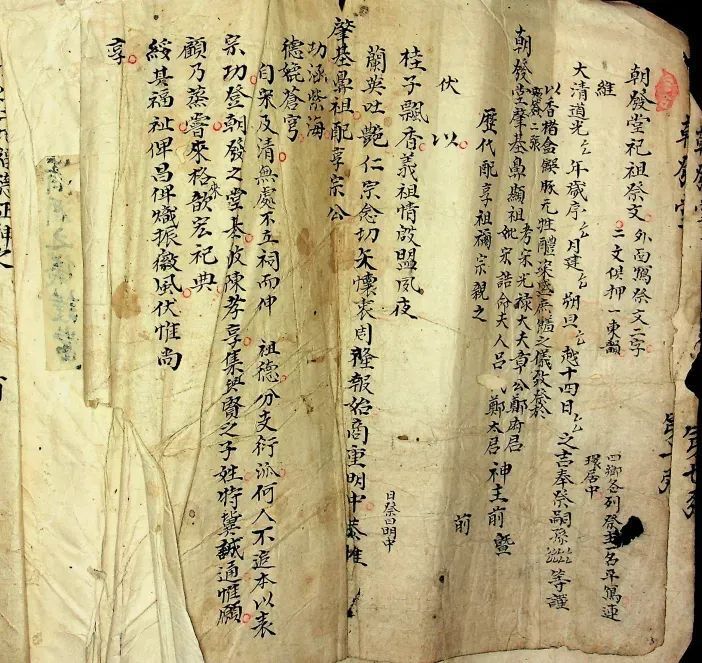 朝發堂祀祖祭文 外面寫祭文二字
二文俱押一東韻
四鄉各列祭主名平寫連
環居中
維
大清道光 年歲序 月建 朔旦 越十四日 之吉奉祭嗣孫 等謹
以香楮金銀豚元牲醴粢盛庶饈之儀致祭於
朝發堂肇基鼻顯祖考宋光祿大夫章公鄭府君
妣宋誥命夫人呂 氏鄭太君 神主前暨
歷代配享祖禰宗親之
前
伏 以
桂子飄香義祖情殷盟夙夜
蘭英吐艷仁宗念切矢懷衷周隆報始商重明中恭惟
日祭曰明中
肇基鼻祖配享宗公
功涵紫海
德蛲蒼穹
自宋及清無處不立祠而伸 祖德分支衍派何人不追本以表
宗功登朝發之堂基波陳孝享集興賢之子姓特冀誠通惟願
顧乃蒸嘗來格來歆宏祀典
綏其福祉俾昌俾熾振微風伏惟尚
享